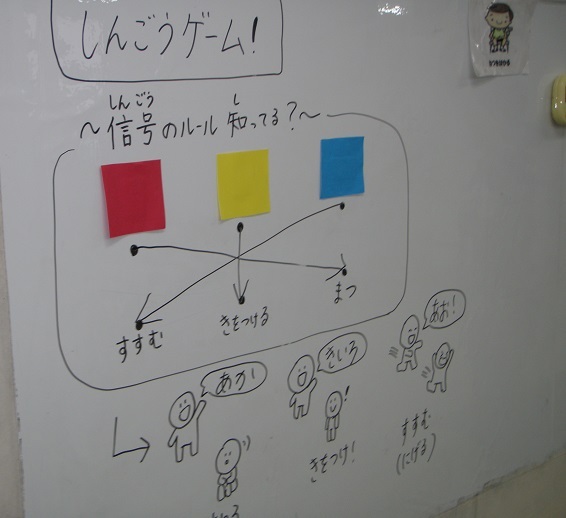 しんごうゲーム!
～信号のルール知ってる?～
しんごう
し
すすむ
きをつける
まつ
あか!
きいろ
あお!
きをつけ!
すすむ
(にげる)